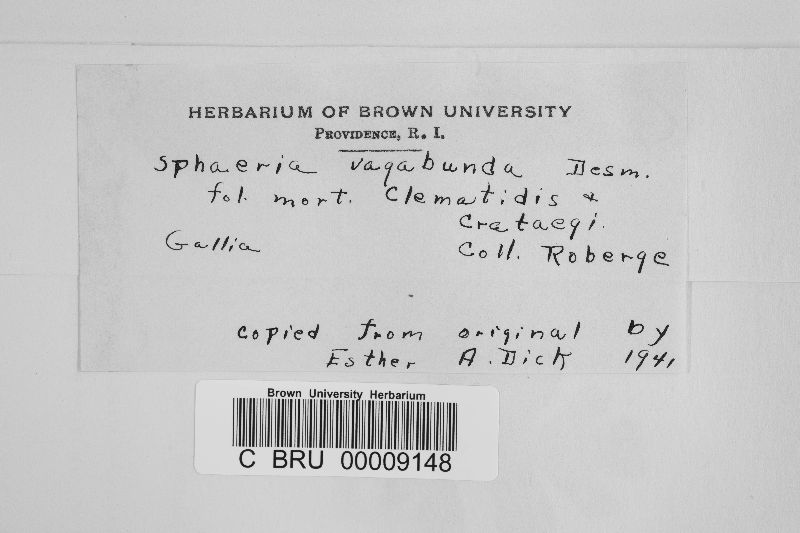 HERBARIUM OF BROWN UNIVERSITY
PROVIDENCE, R. I.
Sphaeria vagabunda Desm.
fol. mort. Clematidis &
Crataegi.
Gallia
Coll. Roberge
copied from original by
Esther A. Dick 1941
Brown University Herbarium
C BRU 00009148